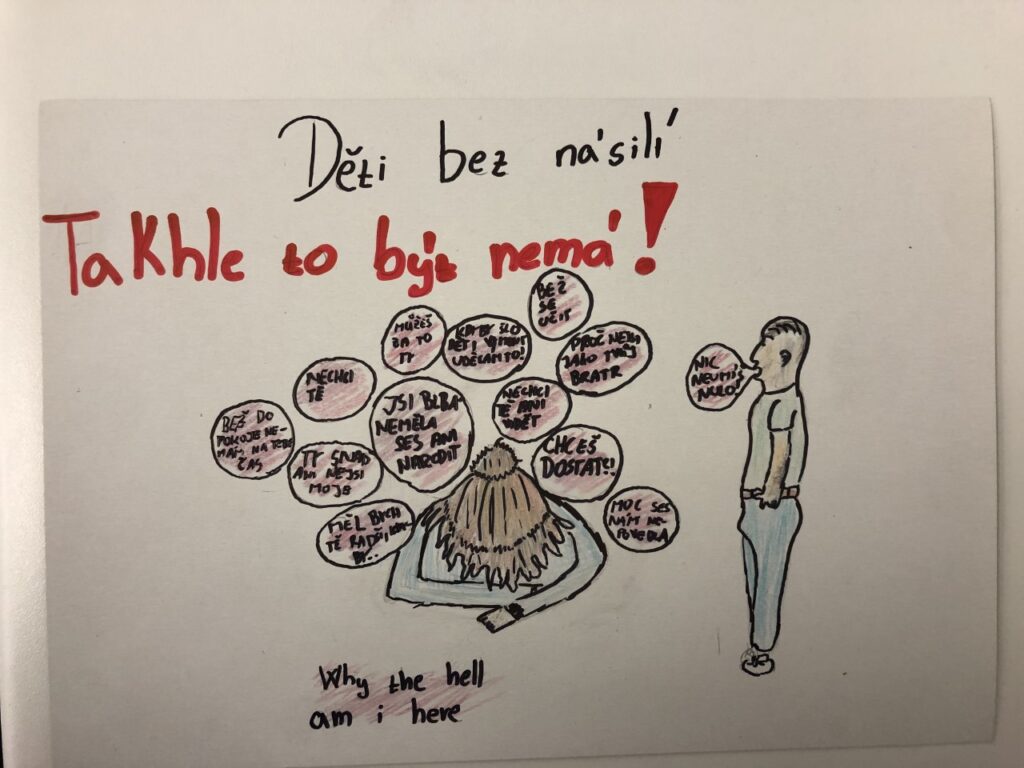 Děti bez násilí
Takhle to být nemá!
BEŽ
SE
UČIT
MŮŽEŠ
ZA TO
TY
KDYBY ŠLO
DĚTI VRÁTIT
UDĚLÁM TO!
PROČ NEJSI
JAKO TVŮJ
BRATR
NIC
NEUMÍŠ
NULO!
NECHCI
TĚ
JSI BLBÁ
NEMĚLA
SES ANI
NARODIT
NECHCI
TĚ ANI
VIDĚT
BEŽ DO
POKOJE NE-
MÁM NA TEBE
ČAS
TY SNAD
ANI NEJSI
MOJE
CHCEŠ
DOSTAT!!
MĚL BYCH
TĚ RADŠI, KDY-
BY...
MOC SES
NÁM NE-
POVEDLA
Why the hell
am i here